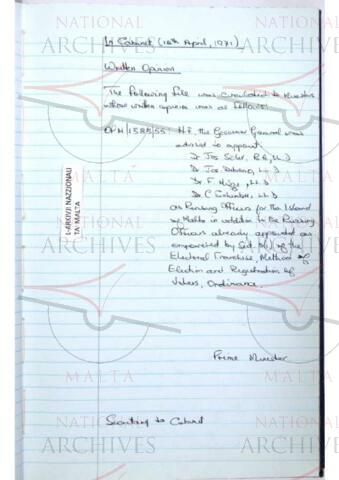 In Cabinet (16th April, 1971)
Written Opinion
The following file was circulated to Ministers
whose written opinion was as follows:
OPM/1585/55: H.E. the Governor General was
advised to appoint:
Dr Jos , B.A., LL.D.
Dr Jos , LL.D.
Dr F , LL.D.
Dr C , LL.D.
as Revising Officers for the Island
of Malta in addition to the Revising
Officers already appointed as
empowered by Sect. of the
Electoral Franchise, Method of
Election and Registration of
Voters, Ordinance.
Prime Minister
Secretary to Cabinet
L-ARKIVJI NAZZJONALI
TA' MALTA
NATIONAL
ARCHIVES
MALTA
NATIONAL
ARCHIVES
MALTA
NATIONAL
ARCHIVES